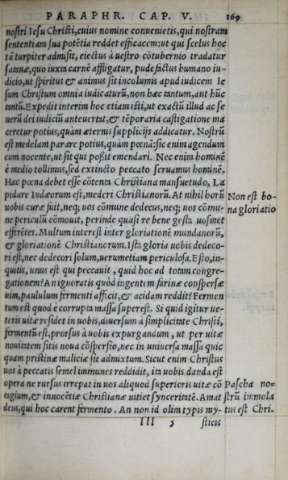 PARAPHR. CAP. V. 169
nostri Iesu Christi, cuius nomine conuenietis, qui nostram
sententiam sua potẽtia reddet efficacem: ut qui scelus hoc
tã turpiter admisit, eiectus à uestro cõtubernio tradatur
satanæ, quo iuxta carnẽ affligatur, pudefactus humano iu-
dicio, ut spiritus & animus sit incolumis apud iudicem Ie
sum Christum omnia iudicaturũ, non hæc tantum, aut hũc
tantũ. Expedit interim hoc etiam isti, ut exactũ illud ac se
uerũ dei iudiciũ anteuertat, & tẽporaria castigatione ma
ceretur potius, quàm æternis supplicijs addicatur. Nostrũ
est medelam parare potius, quàm pœnã: sic enim agendum
cum nocente, ut sit qui possit emendari. Nec enim hominẽ
è medio tollimus, sed extincto peccato seruamus hominẽ.
Hac pœna debet esse cõtenta Christiana mansuetudo, La
pidare Iudæorum est, mederi Christianorũ. At nihil horũ
uobis curæ fuit, neq; uos cõmune dedecus, neq; uos cõmu-
ne periculũ cõmouit, perinde quasi re bene gesta uosmet
efferretis. Multum interest inter gloriationẽ mundanorũ,
& gloriationẽ Christianorum. Ista gloria uobis dedeco-
ri est, nec dedecori solum, uerumetiam periculosa. Esto, in-
quitis, unus est qui peccauit, quid hoc ad totum congre-
gationem? An ignoratis quòd ingentem farinæ conspersæ
uim, paululum fermenti afficit, & acidam reddit? Fermen
tum est quod è corrupta massa superest. Si quid igitur ue-
teris uitæ residet in uobis, diuersum à simplicitate Christi,
fermentũ est, prorsus à uobis expurgandum, ut per uitæ
nouitatem sitis noua cõspersio, nec in uniuersa massa quic
quam pristinæ maliciæ sit admixtum. Sicut enim Christus
uos à peccatis semel immunes reddidit, ita uobis danda est
opera ne rursus irrepat in uos aliquod superioris uitæ cõ
tagium, & innocẽtiæ Christianæ uitiet synceritatẽ. Amat
deus, qui hoc carent fermento. An non id olim typis my-
III 5 sticis
Non est bo-
na gloriatio
Pascha no-
strũ immola
tus est Chri.